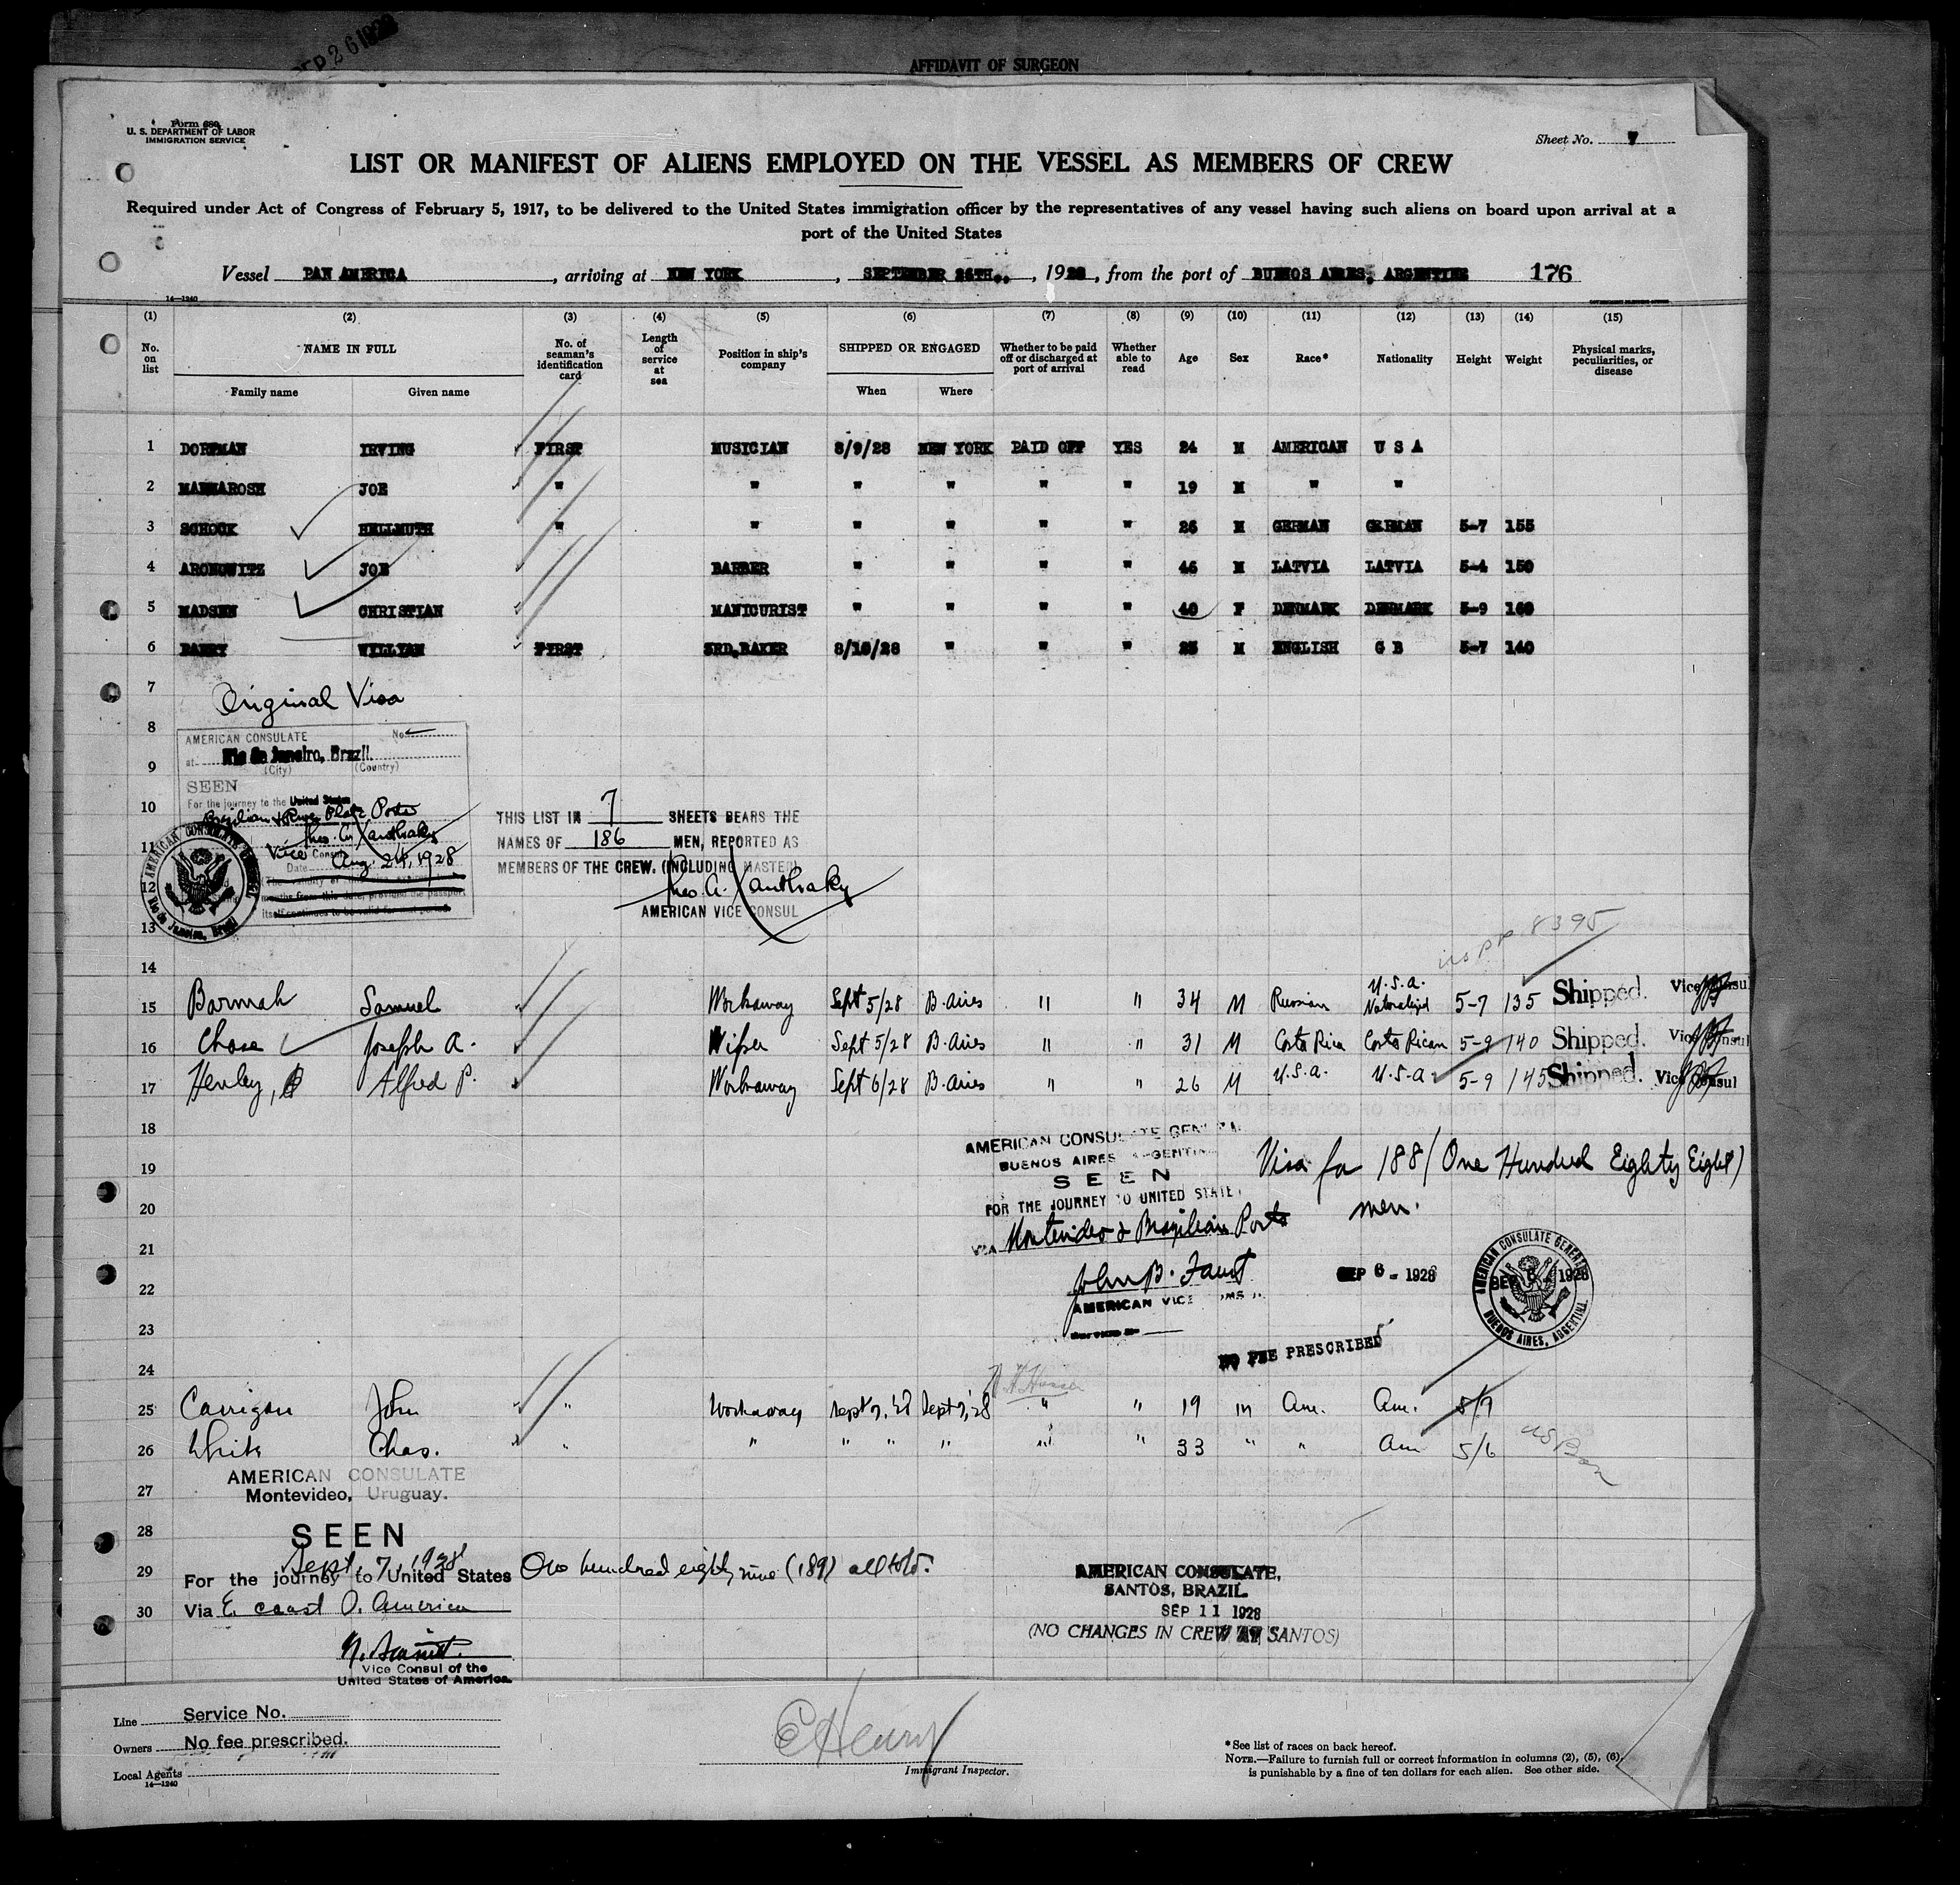 AFFIDAVIT OF SURGEON
SEP 26 1928
Form 680
U. S. DEPARTMENT OF LABOR
IMMIGRATION SERVICE
Sheet No. 7
LIST OR MANIFEST OF ALIENS EMPLOYED ON THE VESSEL AS MEMBERS OF CREW
Required under Act of Congress of February 5, 1917, to be delivered to the United States immigration officer by the representatives of any vessel having such aliens on board upon arrival at a
port of the United States
Vessel PAN AMERICA, arriving at NEW YORK, SEPTEMBER 26TH., 1928, from the port of BUENOS AIRES, ARGENTINE 176
14—1240
(1) (2) (3) (4) (5) (6) (7) (8) (9) (10) (11) (12) (13) (14) (15)
No. on list NAME IN FULL Family name Given name No. of seaman's identification card Length of service at sea Position in ship's company SHIPPED OR ENGAGED When Where Whether to be paid off or discharged at port of arrival Whether able to read Age Sex Race* Nationality Height Weight Physical marks, peculiarities, or disease
1 DORFMAN IRVING FIRST MUSICIAN 8/9/28 NEW YORK PAID OFF YES 24 M AMERICAN U S A
2 JOE " " " " " " 19 M " "
3 SCHOCK HELLMUTH " " " " " " 26 M GERMAN GERMAN 5-7 155
4 ARONOWITZ JOE BARBER " " " " 46 M LATVIA LATVIA 5-4 150
5 MADSEN CHRISTIAN MANICURIST " " " " 40 F DENMARK DENMARK 5-9 160
6 BARRY WILLYAM FIRST 3RD.BAKER 8/10/28 " " " 25 M ENGLISH G B 5-7 140
7 Original Visa
8 AMERICAN CONSULATE No.
9 at Rio de Janeiro, Brazil.
(City) (Country)
SEEN
10 For the journey to the United States
Brazilian & River Plate Ports
Theo. A. Xanthaky
11 Vice Consul
Date Aug. 24, 1928
12
13
AMERICAN CONSULATE GENERAL Rio de Janeiro, Brazil
THIS LIST IN 7 SHEETS BEARS THE
NAMES OF 186 MEN, REPORTED AS
MEMBERS OF THE CREW. (INCLUDING MASTER)
Theo. A. Xanthaky
AMERICAN VICE CONSUL
US PP 8395
14
15 Barmah Samuel Workaway Sept 5/28 B. Aires " " 34 M Russian U.S.A. Naturalized 5-7 135 Shipped. Vice Consul
16 Chase Joseph A. Wiper Sept 5/28 B. Aires " " 31 M Costa Rica Costa Rican 5-9 140 Shipped. Vice Consul
17 Henley, Alfred P. Workaway Sept 6/28 B. Aires " " 26 M U.S.A. U.S.A. 5-9 145 Shipped. Vice Consul
18
19
20
21
22
23
AMERICAN CONSULATE GENERAL
BUENOS AIRES ARGENTINA
SEEN
FOR THE JOURNEY TO UNITED STATES
VIA Montevideo & Brazilian Ports
John B. Faust
AMERICAN VICE CONSUL
Service No
Visa for 188 (One Hundred Eighty Eight)
men.
SEP 6 - 1928
AMERICAN CONSULATE GENERAL SEP 6 1928 BUENOS AIRES, ARGENTINA.
NO FEE PRESCRIBED
24
25 Carrigan John " Workaway Sept 7, '28 Sept 7, '28 " " 19 m Am. Am. 5/9
26 White Chas. " " " " " " " 33 " " Am 5/6
27
28
29
30
AMERICAN CONSULATE
Montevideo, Uruguay.
SEEN
Sept. 7, 1928
For the journey to United States One hundred eighty nine (189) all told.
Via E. coast S. America
Vice Consul of the
United States of America.
AMERICAN CONSULATE,
SANTOS, BRAZIL.
SEP 11 1928
(NO CHANGES IN CREW AT SANTOS)
Line Service No.
Owners No fee prescribed.
Local Agents
14—1240
E Henry
Immigrant Inspector.
*See list of races on back hereof.
NOTE.—Failure to furnish full or correct information in columns (2), (5), (6),
is punishable by a fine of ten dollars for each alien. See other side.